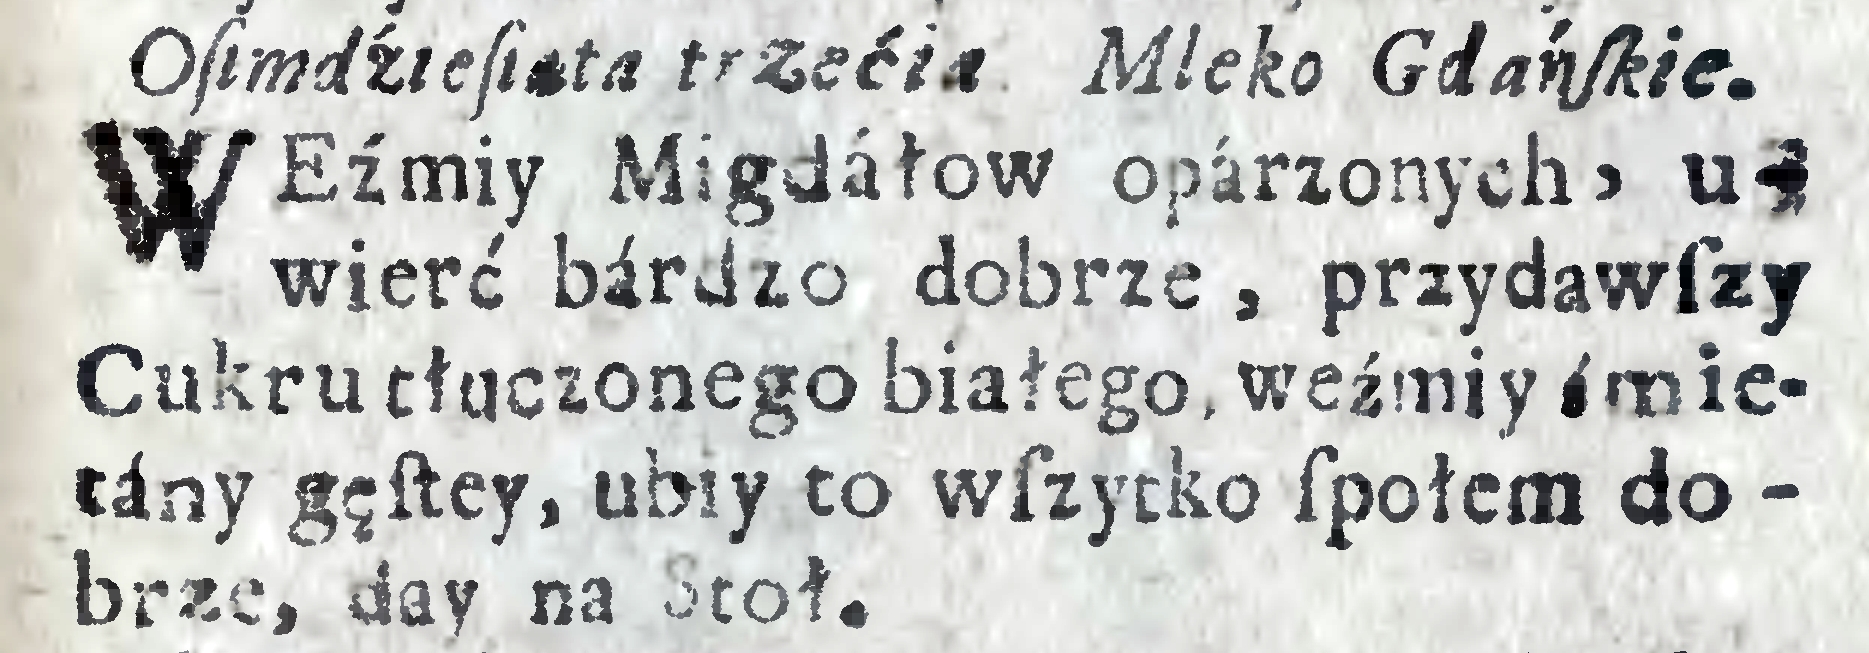 Oſimdźieſiąta trzećia Mleko Gdáńſkie.
WEźmiy Migdáłow opárzonych, u-
wierć bárdzo dobrze, przydawſzy
Cukru tłuczonego białego, weźmiy śmie-
tány gęſtey, ubiy to wſzytko ſpołem do-
brze, day na Stoł.